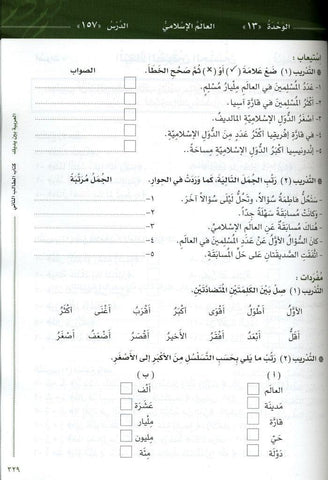 الوَحْدَةُ «١٣» العالَمُ الإسْلاميُّ الدَّرْسُ «١٥٧»
اسْتيعاب:
التَّدْريب (١) ضَعْ عَلامَةَ (✓) أَوْ (×) ثُمَّ صَحِّحِ الخَطَأَ. الصواب
١- عَدَدُ المُسْلِمينَ في العالَمِ مِلْيارُ مُسْلِمٍ.
٢- أَكْثَرُ المُسْلِمينَ في قارَّةِ آسِيا.
٣- أَصْغَرُ الدُّوَلِ الإسْلاميَّةِ المالديف.
٤- في قارَّةِ إفْريقيا أَكْثَرُ عَدَدٍ مِنَ الدُّوَلِ الإسْلاميَّةِ.
٥- إندونيسيا أَكْبَرُ الدُّوَلِ الإسْلاميَّةِ مِساحَةً.
التَّدْريب (٢) رَتِّبِ الجُمَلَ التاليَةَ، كَما وَرَدَتْ في الحِوارِ. الجُمَلُ مُرَتَّبَةً
- سَتَحُلُّ فاطِمَةُ سُؤالاً، وتَحُلُّ لَيْلَى سُؤالاً آخَرَ. ١-
- وكانَتْ مُسابَقَةً سَهْلَةً جِدّاً. ٢-
- هُناكَ مُسابَقَةٌ عَنِ العالَمِ الإسْلاميِّ. ٣-
- كانَ السُّؤالُ الأَوَّلُ عَنْ عَدَدِ المُسْلِمينَ في العالَمِ. ٤-
- اتَّفَقَتِ الصَّديقَتانِ عَلى حَلِّ المُسابَقَةِ. ٥-
مُفْرَدات:
التَّدْريب (١) صِلْ بَيْنَ الكَلِمَتَيْنِ المُتَضادَّتَيْنِ.
الأَوَّلُ أَطْوَلُ أَقْوَى أَكْبَرُ أَقْرَبُ أَغْنَى أَكْثَرُ
أَقَلُّ أَبْعَدُ أَفْقَرُ الأَخيرُ أَقْصَرُ أَضْعَفُ أَصْغَرُ
التَّدْريب (٢) رَتِّبْ ما يَلي بِحَسَبِ التَّسَلْسُلِ مِنَ الأَكْبَرِ إلى الأَصْغَرِ.
( أ ) ( ب )
العالَم أَلْف
مَدينَة عَشَرَة
قارَّة مِلْيار
حَيّ مِلْيون
دَوْلَة مِئَة
العربية بين يديك، كتاب الطالب الثاني
٢٢٩